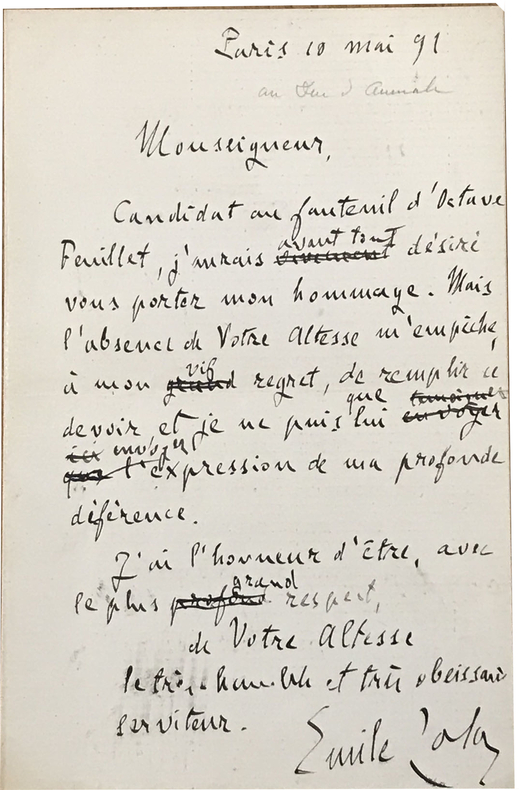 Paris 10 mai 91
au Duc d'Aumale
Monseigneur,
Candidat au fauteuil d'Octave
Feuillet, j'aurais avant tout vivement désiré
vous porter mon hommage. Mais
l'absence de Votre Altesse m'empêche,
à mon grand vif regret, de remplir ce
devoir et je ne puis que lui témoigner envoyer
ici envoyer
que l'expression de ma profonde
déférence.
J'ai l'honneur d'être, avec
le plus profond grand respect,
de Votre Altesse
le très humble et très obeissant
serviteur.
Emile Zola